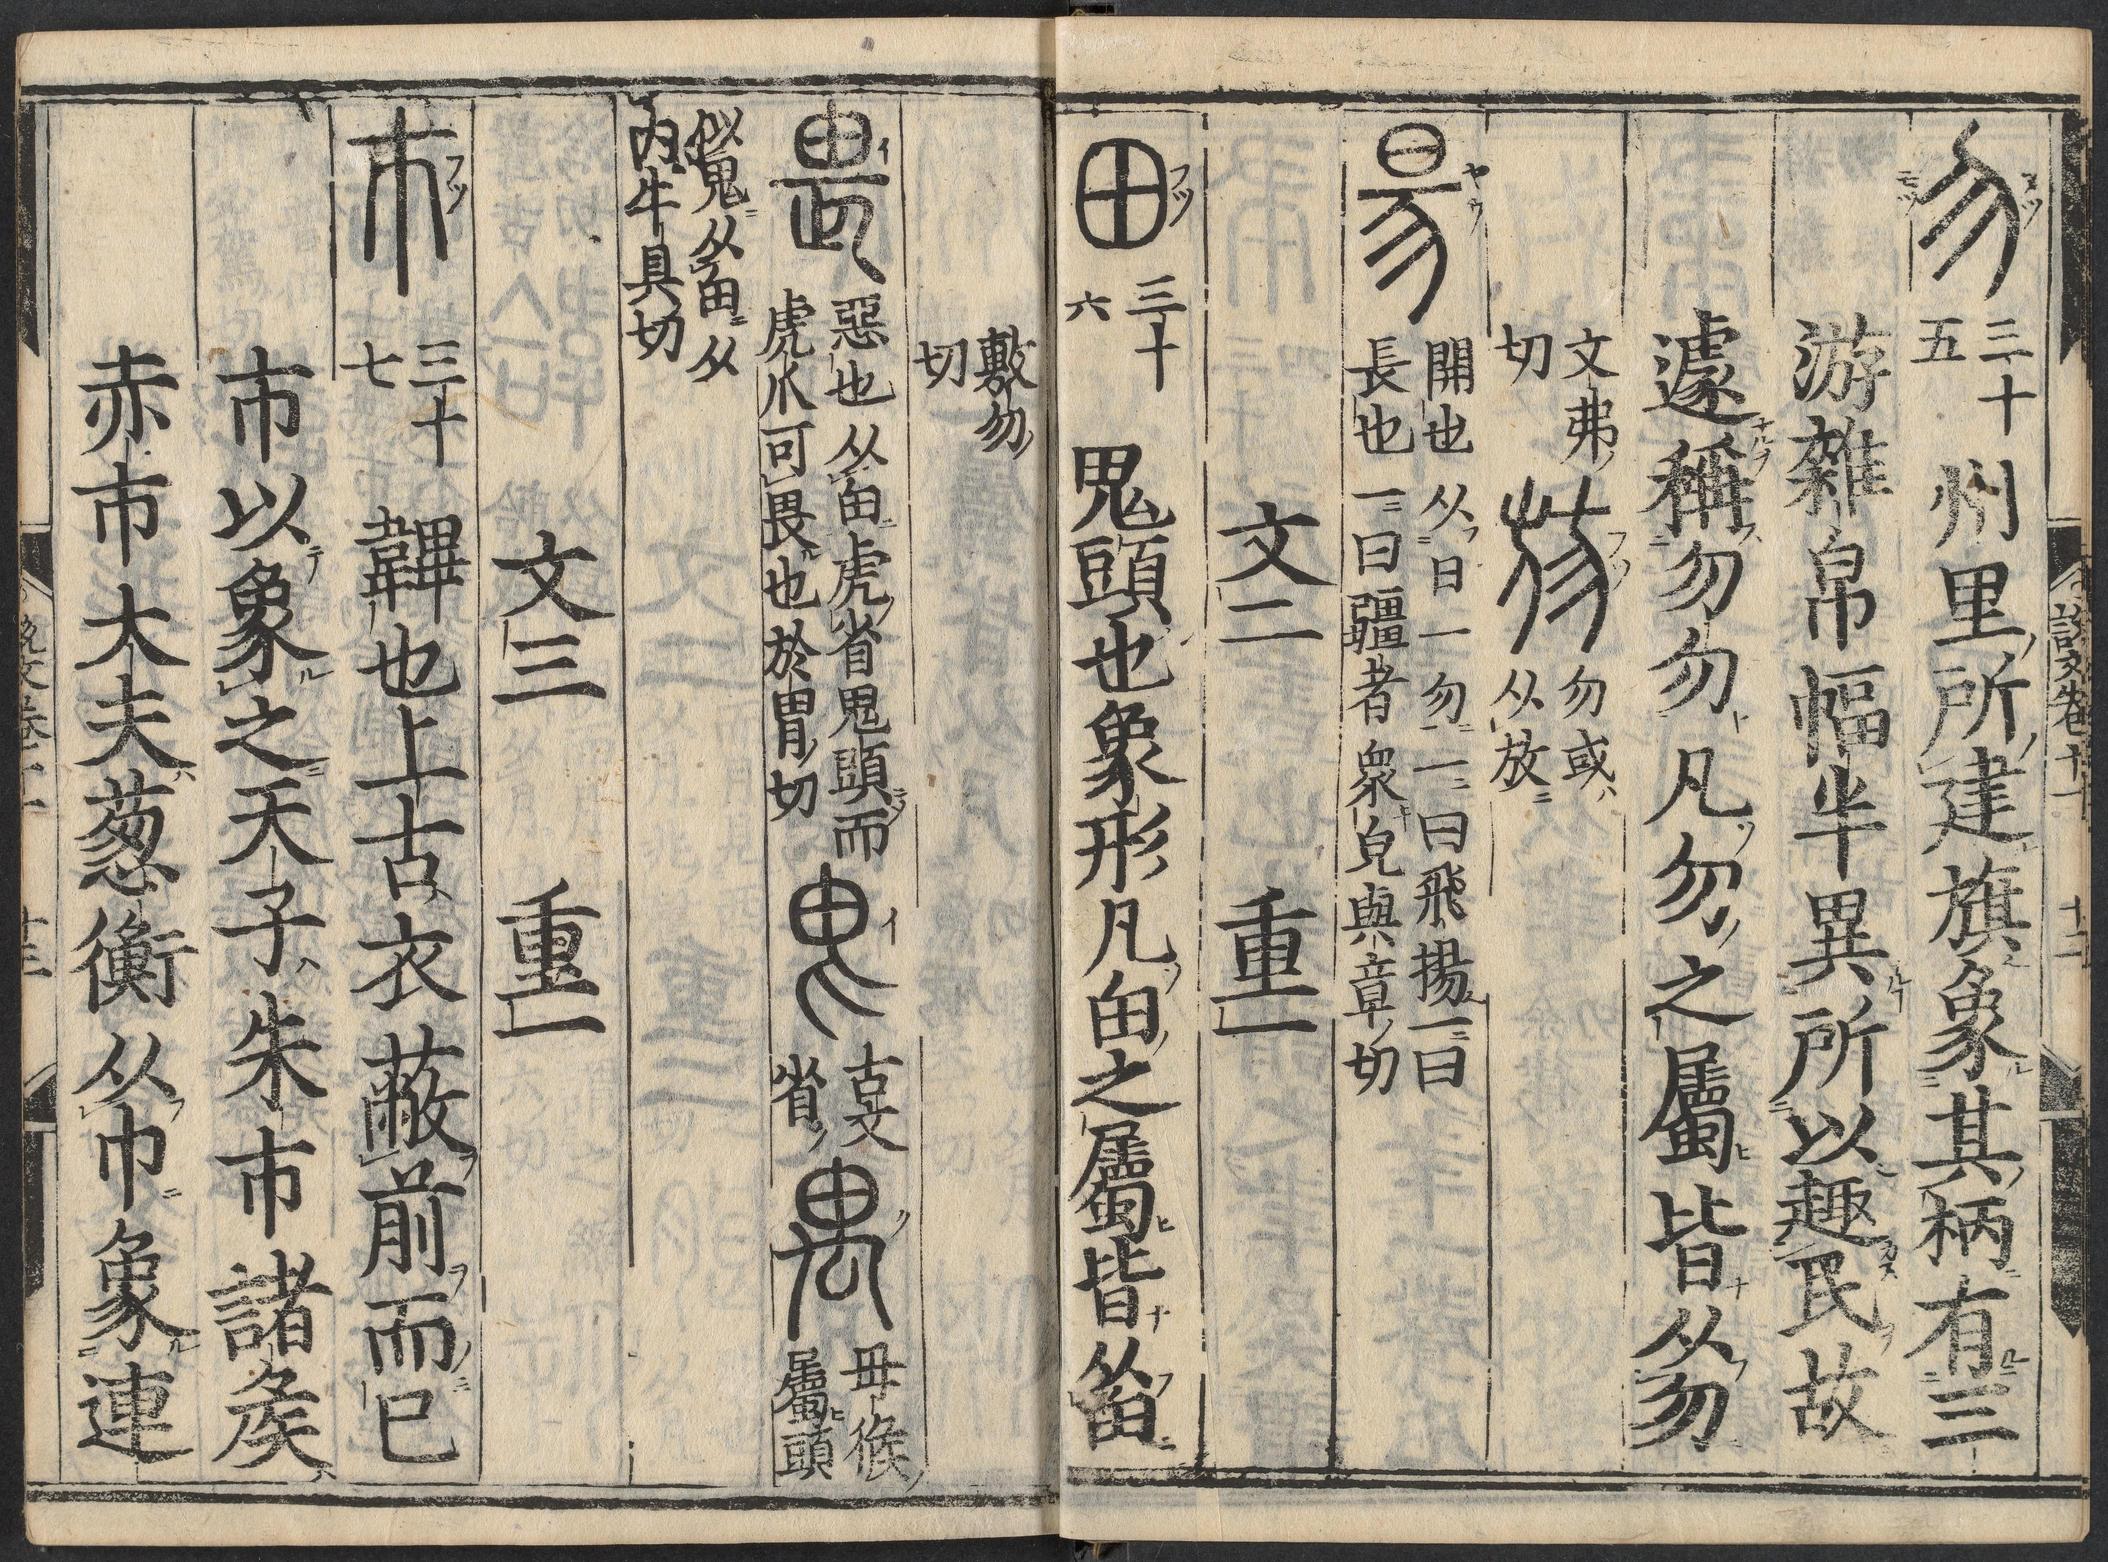 勿 三十五 州里所建旗象其柄有三
游雜帛幅半異所以趣民故
遽稱勿勿凡勿之屬皆从勿
文弗切 勿或从㫃
昜 開也从日一勿一曰飛揚一曰長也一曰彊者衆皃與章切
文二 重一
甶 三十六 鬼頭也象形凡甶之屬皆从甶
敷勿切
畏 惡也从甶虎省鬼頭而虎爪可畏也於胃切 古文省 禺 母猴屬頭
似鬼从甶从禸牛具切
文三 重一
巿 三十七 韠也上古衣蔽前而已
巿以象之天子朱巿諸矦
赤巿大夫葱衡从巾象連
說文卷十一 十二
說文卷十一 十三